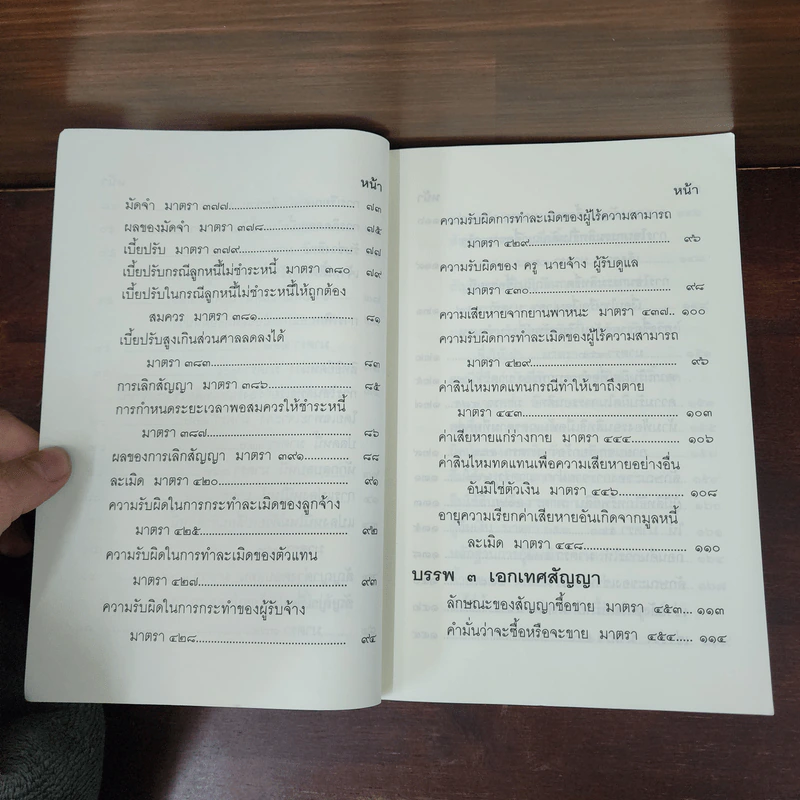 หน้า
มัดจำ มาตรา ๓๗๗.................................. ๗๓
ผลของมัดจำ มาตรา ๓๗๘........................ ๗๕
เบี้ยปรับ มาตรา ๓๗๙............................. ๗๗
เบี้ยปรับกรณีลูกหนี้ไม่ชำระหนี้ มาตรา ๓๘๐ ๗๙
เบี้ยปรับในกรณีลูกหนี้ไม่ชำระหนี้ให้ถูกต้อง
สมควร มาตรา ๓๘๑........................... ๘๑
เบี้ยปรับสูงเกินส่วนศาลลดลงได้
มาตรา ๓๘๓...................................... ๘๓
การเลิกสัญญา มาตรา ๓๘๖..................... ๘๕
การกำหนดระยะเวลาพอสมควรให้ชำระหนี้
มาตรา ๓๘๗...................................... ๘๖
ผลของการเลิกสัญญา มาตรา ๓๙๑........... ๘๘
ละเมิด มาตรา ๔๒๐................................ ๙๑
ความรับผิดในการกระทำละเมิดของลูกจ้าง
มาตรา ๔๒๕...................................... ๙๒
ความรับผิดในการทำละเมิดของตัวแทน
มาตรา ๔๒๗...................................... ๙๓
ความรับผิดในการกระทำของผู้รับจ้าง
มาตรา ๔๒๘...................................... ๙๔
หน้า
ความรับผิดการทำละเมิดของผู้ไร้ความสามารถ
มาตรา ๔๒๙...................................... ๙๖
ความรับผิดของ ครู นายจ้าง ผู้รับดูแล
มาตรา ๔๓๐...................................... ๙๘
ความเสียหายจากยานพาหนะ มาตรา ๔๓๗.. ๑๐๐
ความรับผิดการทำละเมิดของผู้ไร้ความสามารถ
มาตรา ๔๒๙...................................... ๙๖
ค่าสินไหมทดแทนกรณีทำให้เขาถึงตาย
มาตรา ๔๔๓...................................... ๑๐๓
ค่าเสียหายแก่ร่างกาย มาตรา ๔๔๔............ ๑๐๖
ค่าสินไหมทดแทนเพื่อความเสียหายอย่างอื่น
อันมิใช่ตัวเงิน มาตรา ๔๔๖................ ๑๐๘
อายุความเรียกค่าเสียหายอันเกิดจากมูลหนี้
ละเมิด มาตรา ๔๔๘.......................... ๑๑๐
บรรพ ๓ เอกเทศสัญญา
ลักษณะของสัญญาซื้อขาย มาตรา ๔๕๓... ๑๑๓
คำมั่นว่าจะซื้อหรือจะขาย มาตรา ๔๕๔..... ๑๑๔